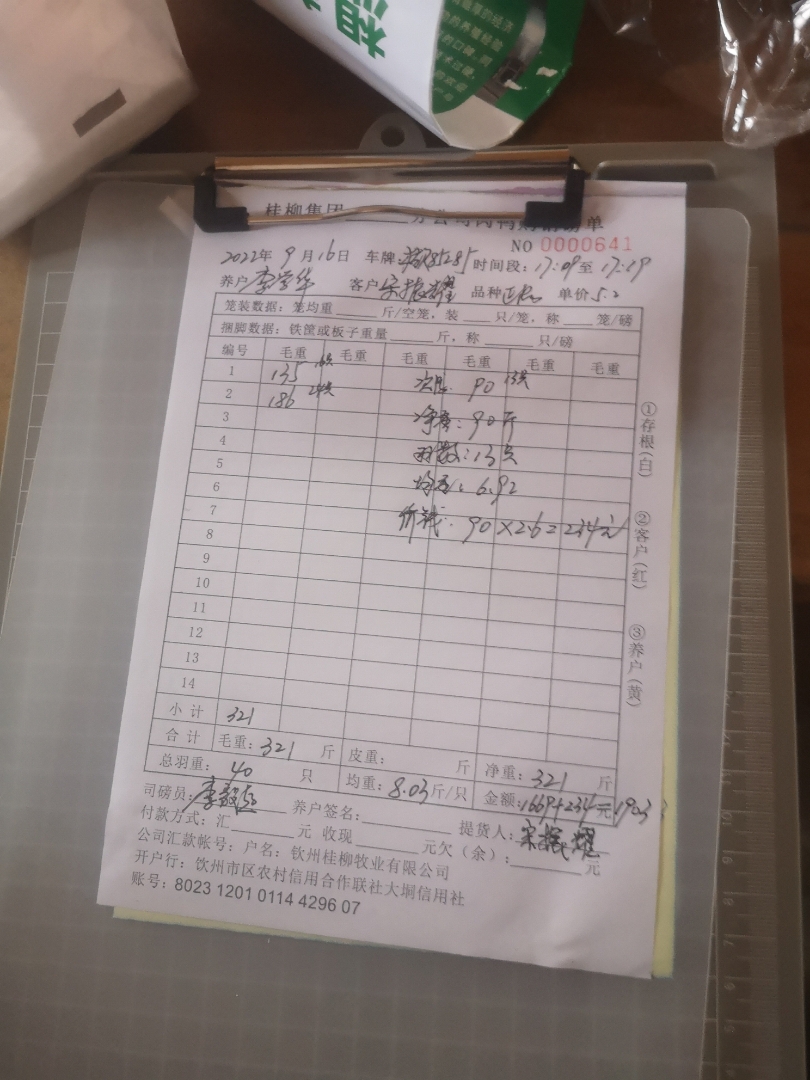 桂柳集团 分公司肉鸭购销磅单
NO 0000641
2022年 9月16日 车牌 时间段：17:09至 17:19
养户 李学华 客户 宋振耀 品种 单价 5.2
笼装数据：笼均重 斤/空笼，装 只/笼，称 笼/磅
捆脚数据：铁筐或板子重量 斤，称 只/磅
编号 毛重 毛重 毛重 毛重 毛重 毛重
1 135 16只 次品 90 13只
2 186 24只
净重：90斤
3
羽数：13只
4
5
均重：6.92
6
7 价钱：90×2.6=234元
8
9
10
11
12
13
14
小计 321
合计 毛重：321 斤 皮重： 斤 净重：321 斤
总羽重：40 只 均重：8.03斤/只 金额：1669+234元=1903
司磅员： 养户签名： 提货人：宋振耀
付款方式：汇 元 收现 元欠（余）： 元
公司汇款帐号：户名：钦州桂柳牧业有限公司
开户行：钦州市区农村信用合作联社大垌信用社
账号：8023 1201 0114 4296 07
①存根(白)
②客户(红)
③养户(黄)